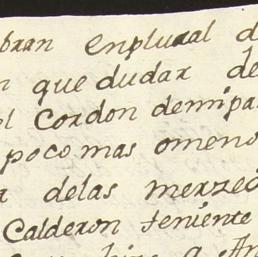 bran enplural d
n que dudar de
ol Cordon demipa
poco mas omeno
a delas merzed
Calderon teniente